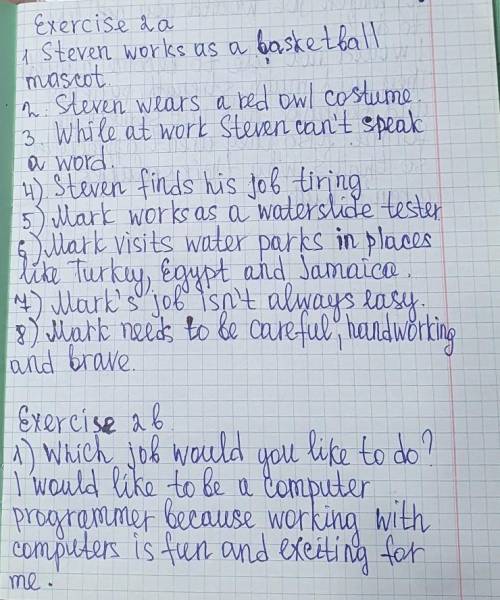 Exercise 2a
1. Steven works as a basketball
mascot.
2. Steven wears a red owl costume.
3. While at work Steven can't speak
a word.
4) Steven finds his job tiring
5) Mark works as a waterslide tester
6) Mark visits water parks in places
like Turkey, Egypt and Jamaica.
7) Mark's job isn't always easy.
8) Mark needs to be careful, handworking
and brave.
Exercise 2b
1) Which job would you like to do?
I would like to be a computer
programmer because working with
computers is fun and exciting for
me.